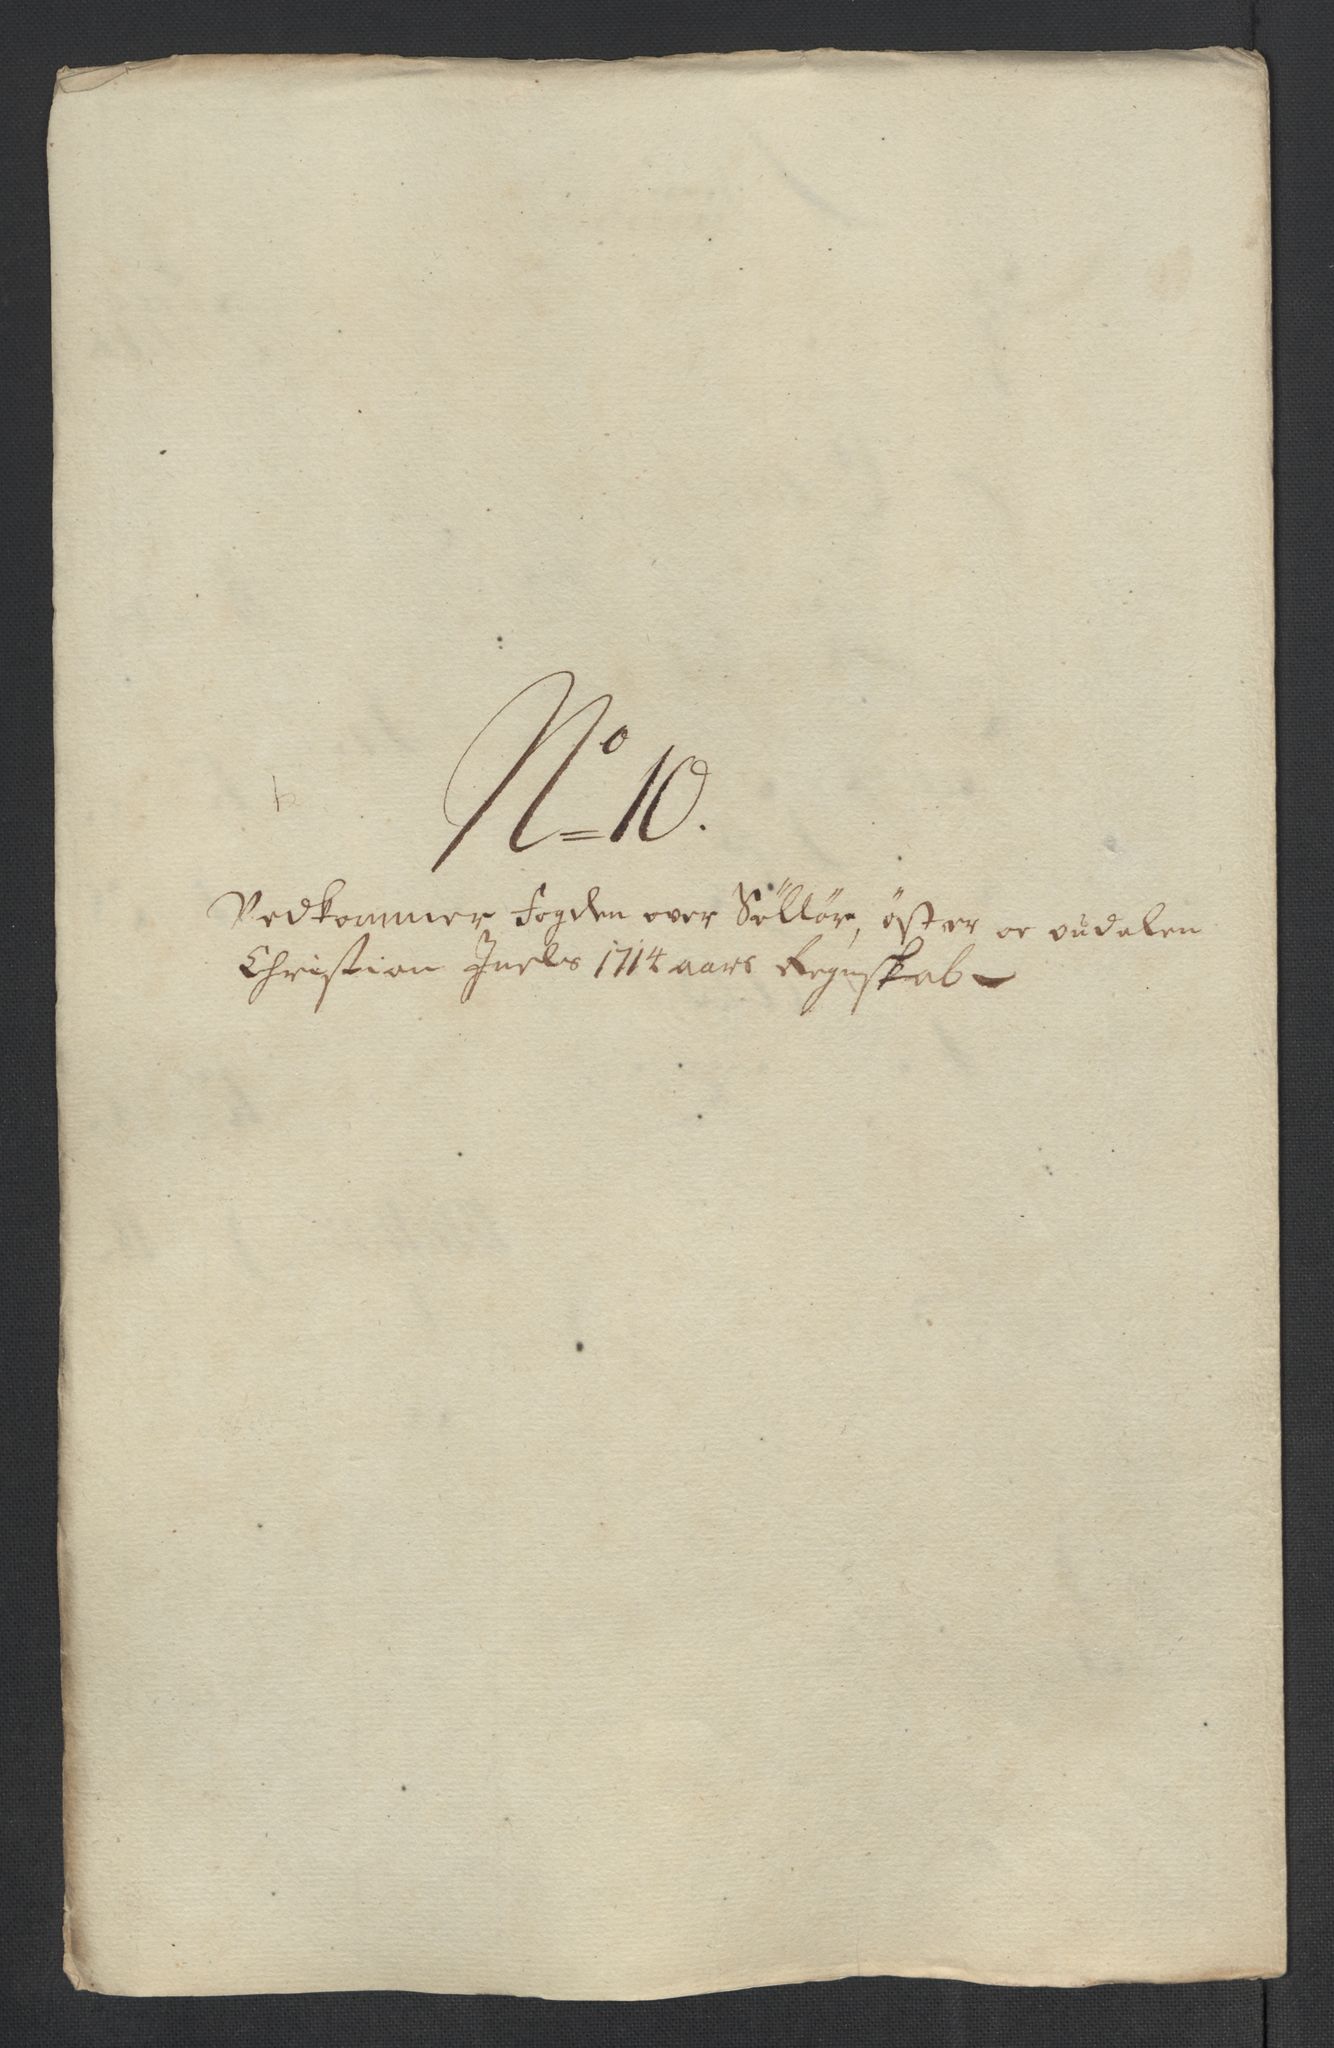 No 10.
Vedkommer Fogden over Sollör, öster oc oudalen
Christian Juels 1714 aars Regnskab